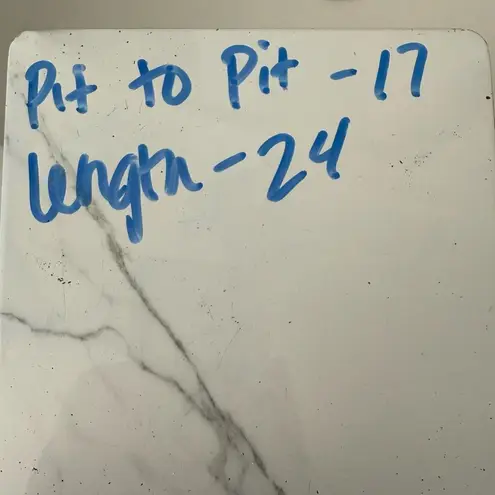 Pit to Pit - 17
length - 24